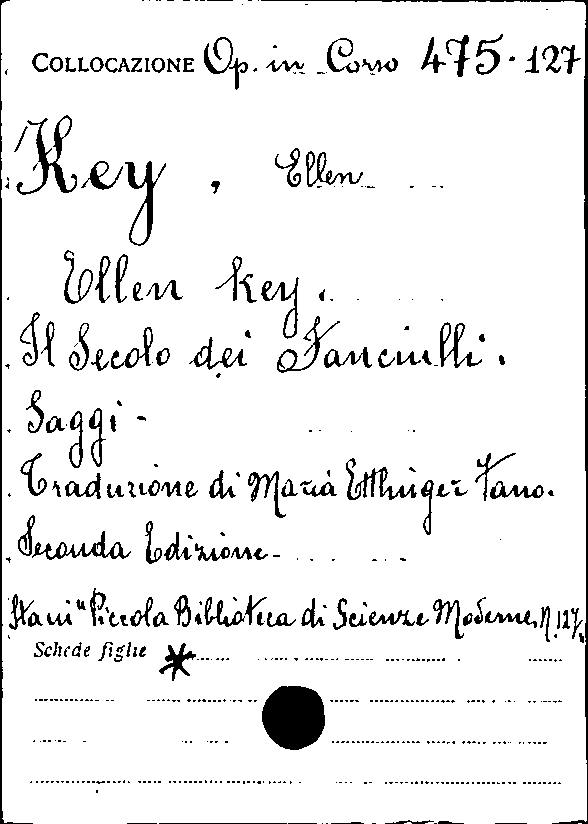 COLLOCAZIONE Op. in Corso 475.127
Key, Ellen
Ellen Key.
Il Secolo dei Fanciulli.
Saggi -
Traduzione di Maria Ettlinger Fano.
Seconda Edizione -
"Piccola Biblioteca di Scienze Moderne, N. 127
Schede figlie *